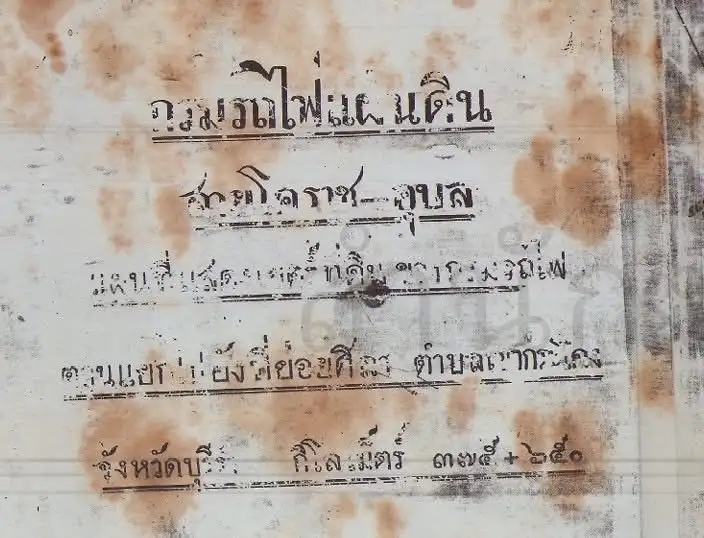 กรมรถไฟแผ่นดิน
สายโคราช-อุบล
แผนที่แสดงเขตร์ที่ดินของกรมรถไฟ
ตามแยกไปยังที่ย่อยศิลา ตำบลเขากระโดง
จังหวัดบุรีรัมย์ กิโลเม็ตร์ ๓๗๕+๖๕๐